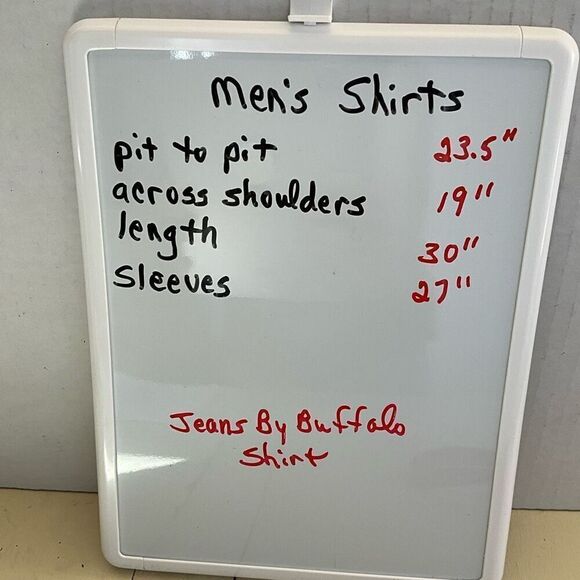 Men's Shirts
pit to pit 23.5"
across shoulders 19"
length 30"
Sleeves 27"
Jeans By Buffalo
Shirt